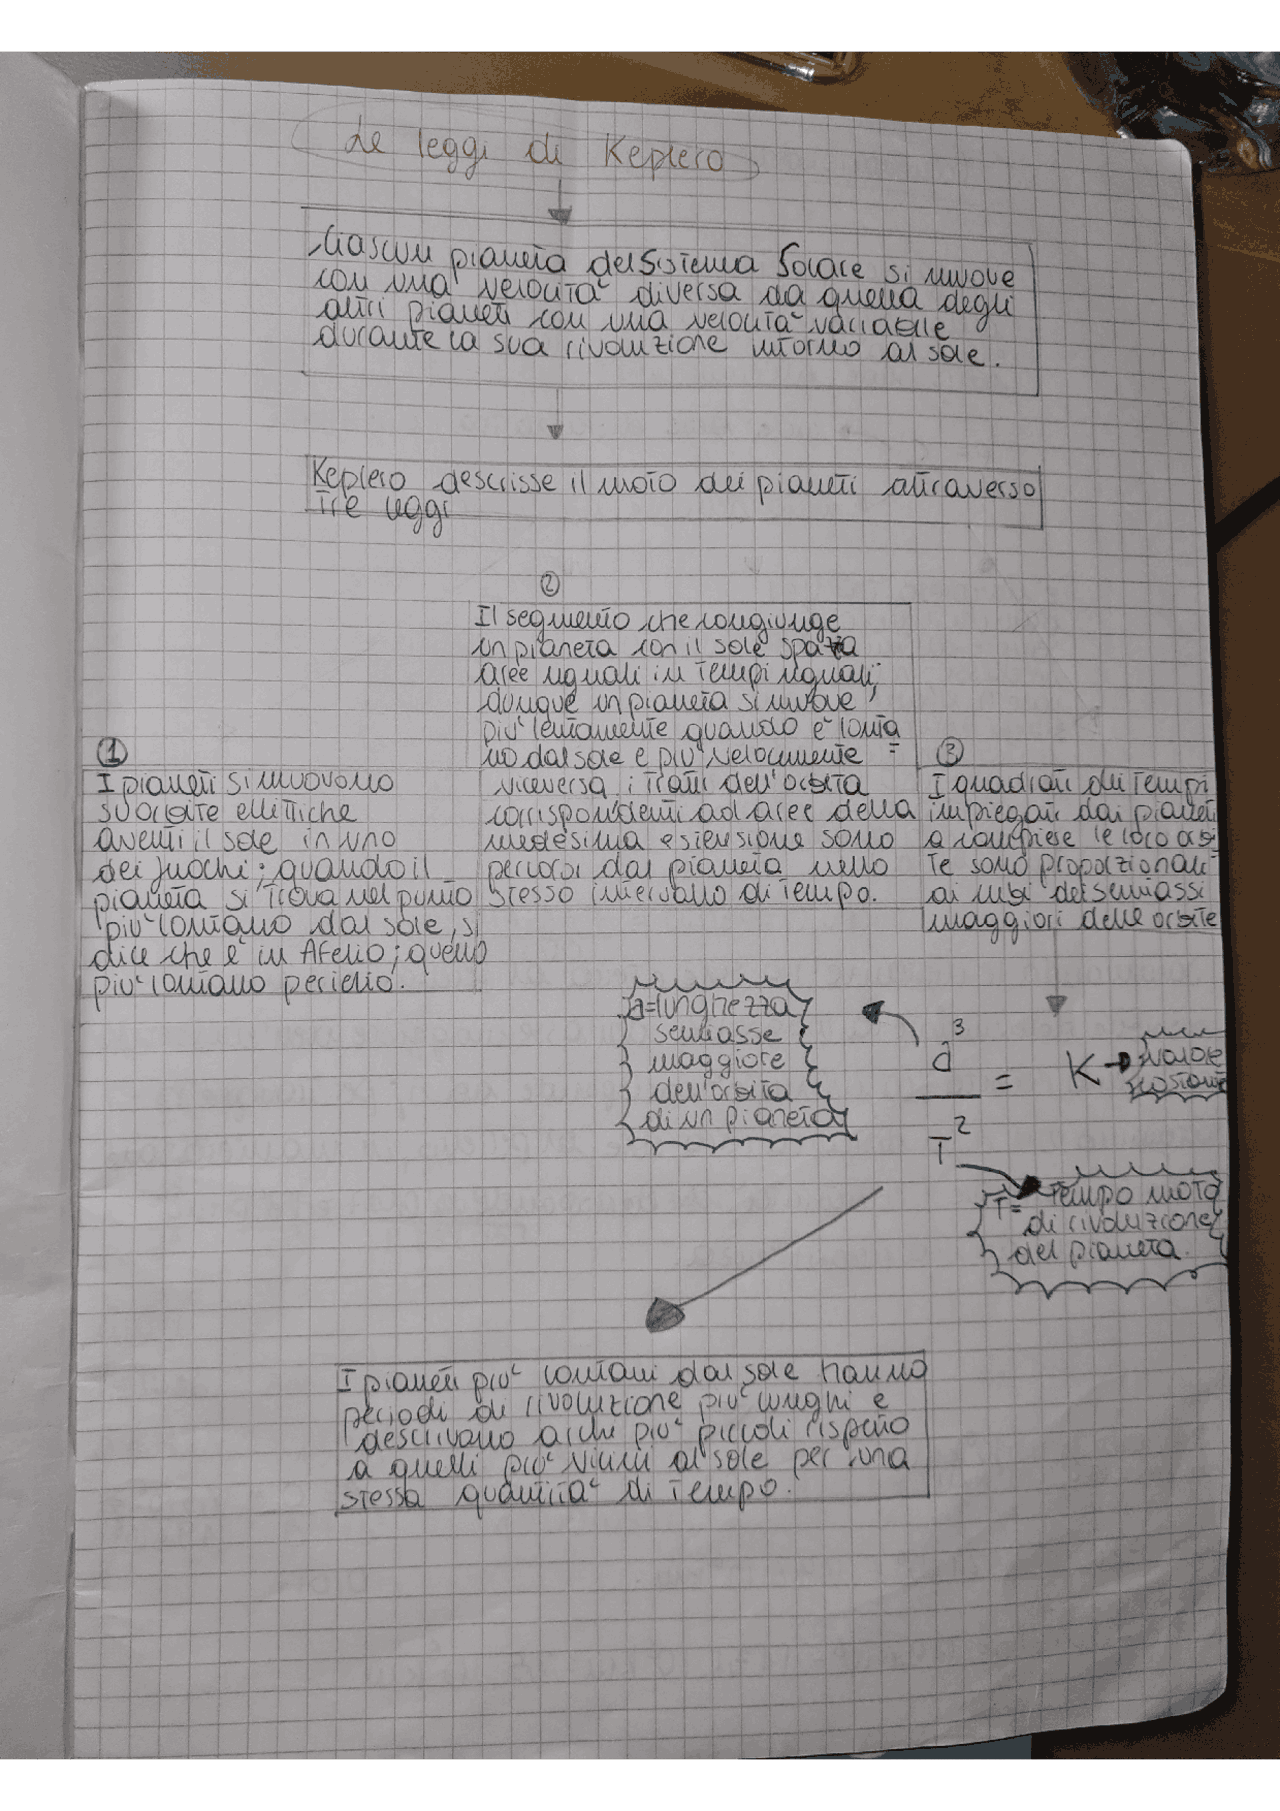 Le leggi di Keplero
Ciascun pianeta del Sistema Solare si muove
con una velocità diversa da quella degli
altri pianeti con una velocità variabile
durante la sua rivoluzione intorno al sole.
Keplero descrisse il moto dei pianeti attraverso
tre leggi
①
I pianeti si muovono
su orbite ellittiche
aventi il sole in uno
dei fuochi; quando il
pianeta si trova nel punto
più lontano dal sole, si
dice che è in Afelio; quello
più lontano perielio.
②
Il segmento che congiunge
un pianeta con il sole spazia
aree uguali in tempi uguali;
dunque un pianeta si muove
più lentamente quando è lonta
no dal sole e più velocemente =
viceversa, i tratti dell'orbita
corrispondenti ad aree della
medesima estensione sono
percorsi dal pianeta nello
stesso intervallo di tempo.
③
I quadrati dei tempi
impiegati dai pianeti
a compiere le loro orbi
te sono proporzionali
ai cubi dei semiassi
maggiori delle orbite
a=lunghezza
semiasse
maggiore
dell'orbita
di un pianeta
a³
= K
T²
valore
costante
T= Tempo moto
di rivoluzione
del pianeta.
I pianeti più lontani dal sole hanno
periodi di rivoluzione più lunghi e
descrivono archi più piccoli rispetto
a quelli più vicini al sole per una
stessa quantità di tempo.